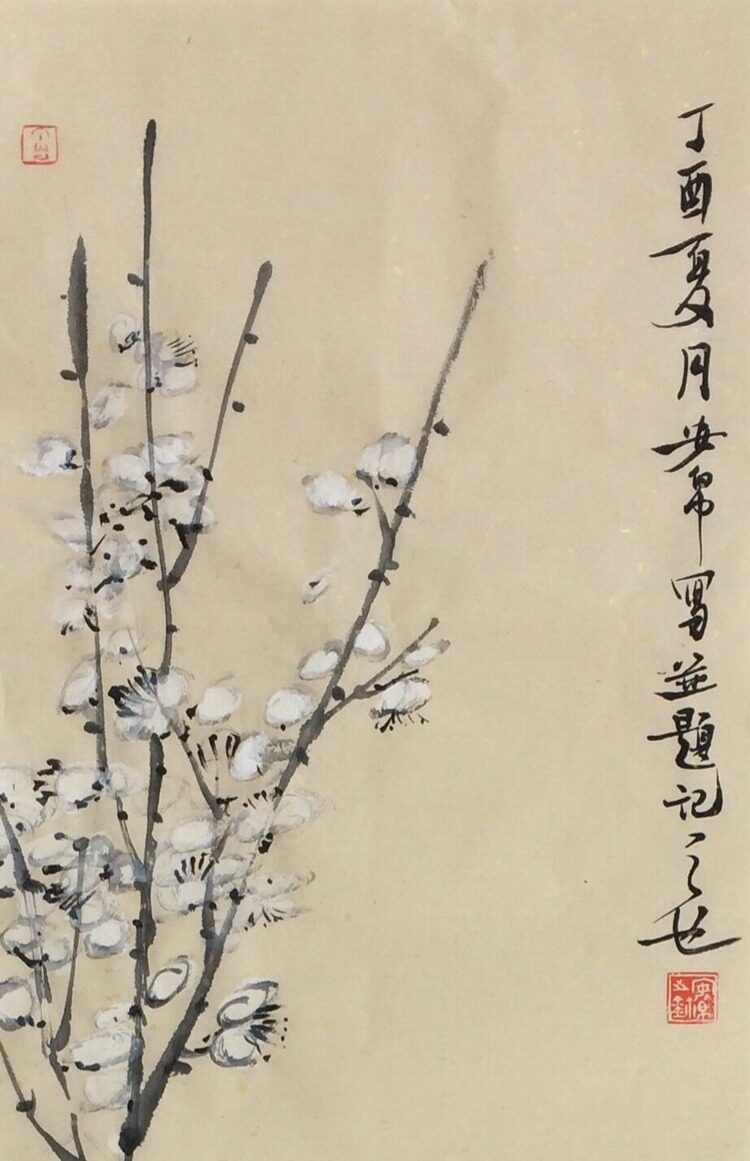 丁酉夏月安帛写並題記之也